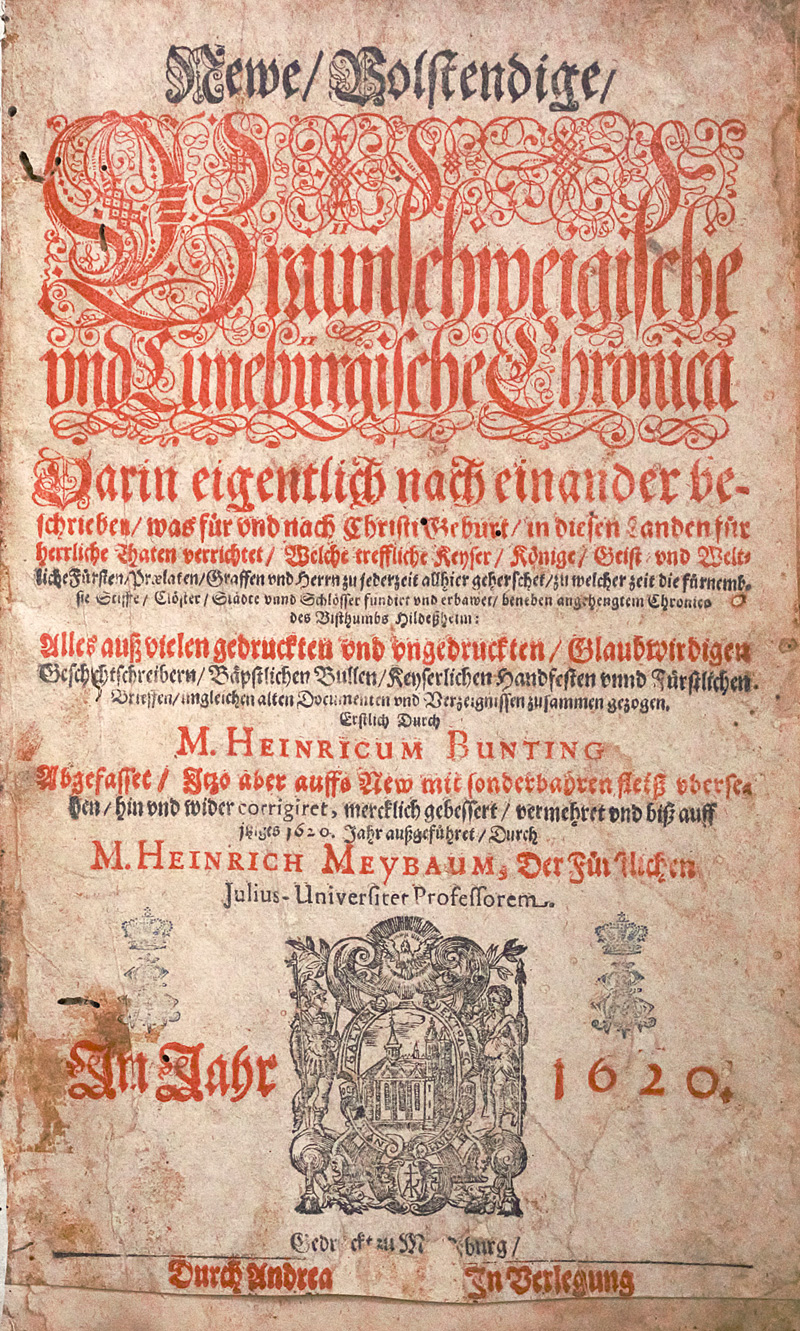 Newe/ Volstendige/
Braunschweigische
vnd Lüneburgische Chronica
Darin eigentlich nach einander be-
schrieben/ was für vnd nach Christi Geburt/ in diesen Landen für
herrliche Thaten verrichtet/ Welche treffliche Keyser/ Könige/ Geist vnd Welt-
liche Fürsten/ Prælaten/ Graffen vnd Herrn zu jederzeit allhier geherschet/ zu welcher zeit die fürnemb-
ste Stiffte/ Clöster/ Städte vnnd Schlösser fundirt vnd erbawet/ beneben angehengtem Chronico
des Bisthumbs Hildeßheim:
Alles auß vielen gedruckten vnd vngedruckten/ Glaubwirdigen
Geschichtschreibern/ Bäpstlichen Bullen/ Keyserlichen Handfesten vnnd Fürstlichen
Brieffen/ imgleichen alten Documenten vnd Verzeignissen zusammen gezogen.
Erstlich Durch
M. HEINRICUM BUNTING
Abgefasset/ Itzo aber auffs New mit sonderbahren fleiß vberse-
hen/ hin vnd wider corrigiret, mercklich gebessert/ vermehret vnd biß auff
1620. Jahr außgeführet/ Durch
M. HEINRICH MEYBAUM, Der
Julius-Universitet Professorem.
SALVEN
In Jahr 1620.
zu
Durch Andrea In Verlegung